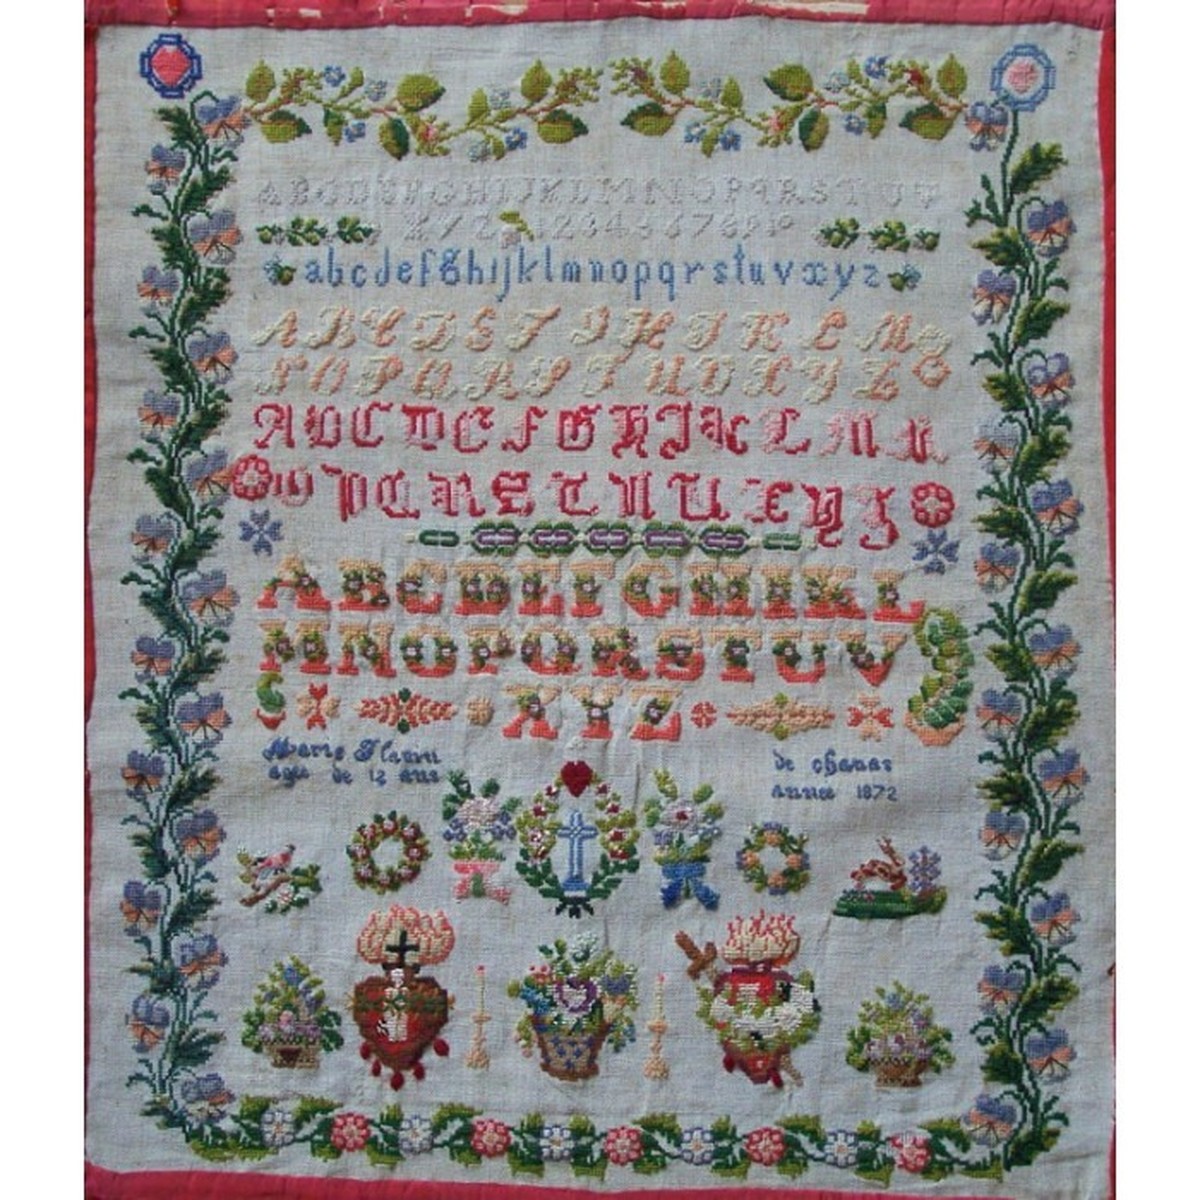 ABCDEFGHIJKLMNOPQRSTUV
XYZ 12345678910
abcdefghijklmnopqrstuvxyz
ABCDEFGHIKLM
NOPQRSTUVXYZ
ABCDEFGHIKLMN
OPQRSTUVXYZ
ABCDEFGHIKL
MNOPQRSTUV
XYZ
Marie
agée de 12 ans
de chanas
année 1872